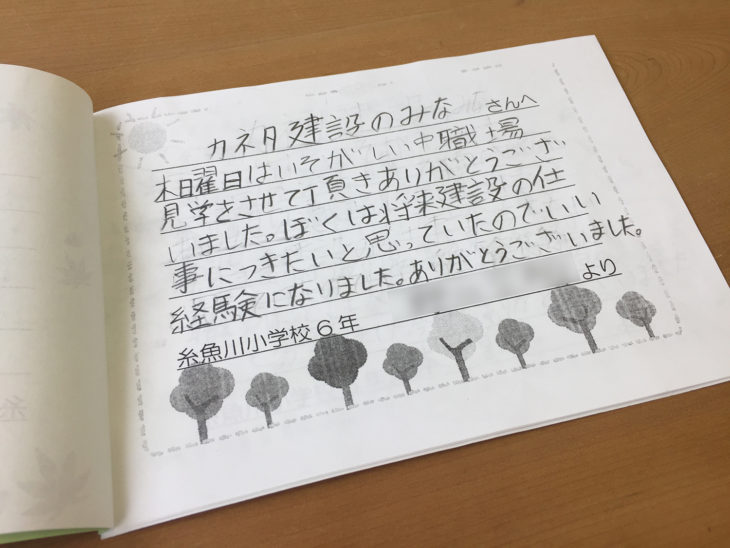 カネタ建設のみなさんへ
木曜日はいそがしい中職場
見学をさせて頂きありがとうござ
いました。ぼくは将来建設の仕
事につきたいと思っていたのでいい
経験になりました。ありがとうございました。
糸魚川小学校6年 より